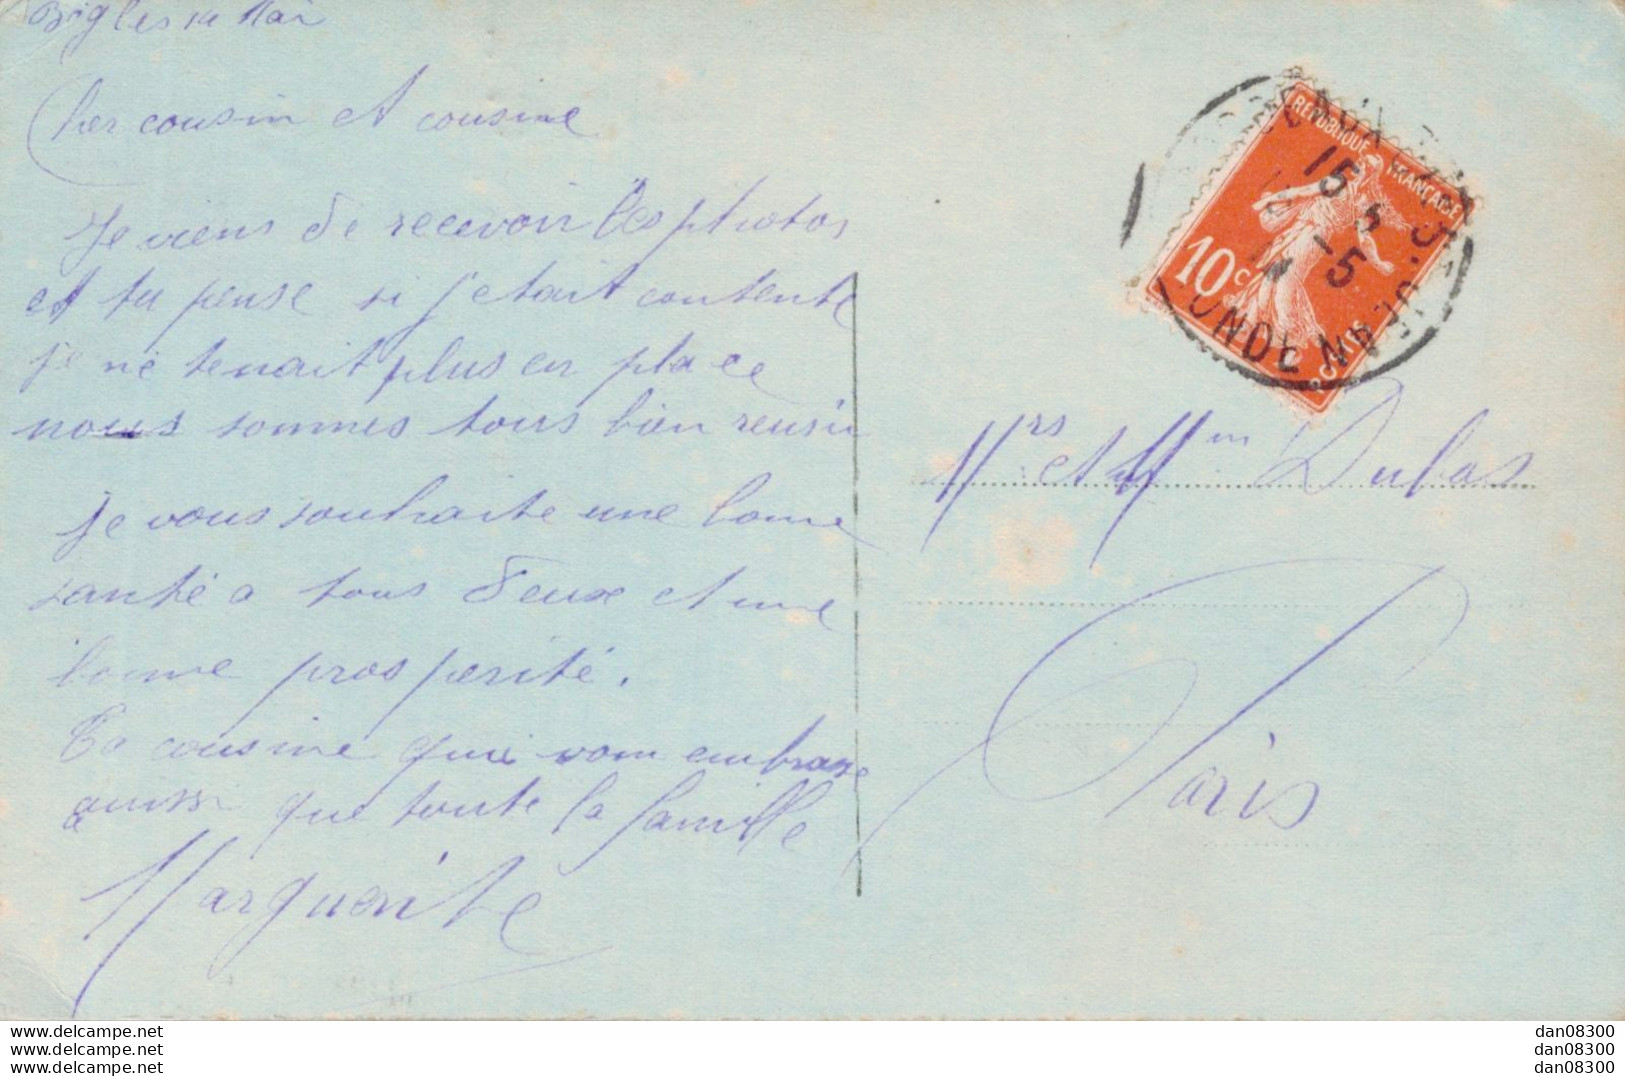 Bègles 14 Mai
Cher cousin et cousine
Je viens de recevoir les photos
et tu pense si j'etait contente
je ne tenait plus en place
nous sommes tous bien reusi
je vous souhaite une bonne
santé a tous deux et une
bonne prosperité.
Ta cousine qui vous embrasse
ainssi que toute la famille
Marguerite
REPUBLIQUE FRANÇAISE
10c
15
5
-5
14
Mrs et Mm Dubos
Paris
www.delcampe.net
www.delcampe.net
www.delcampe.net
dan08300
dan08300
dan08300